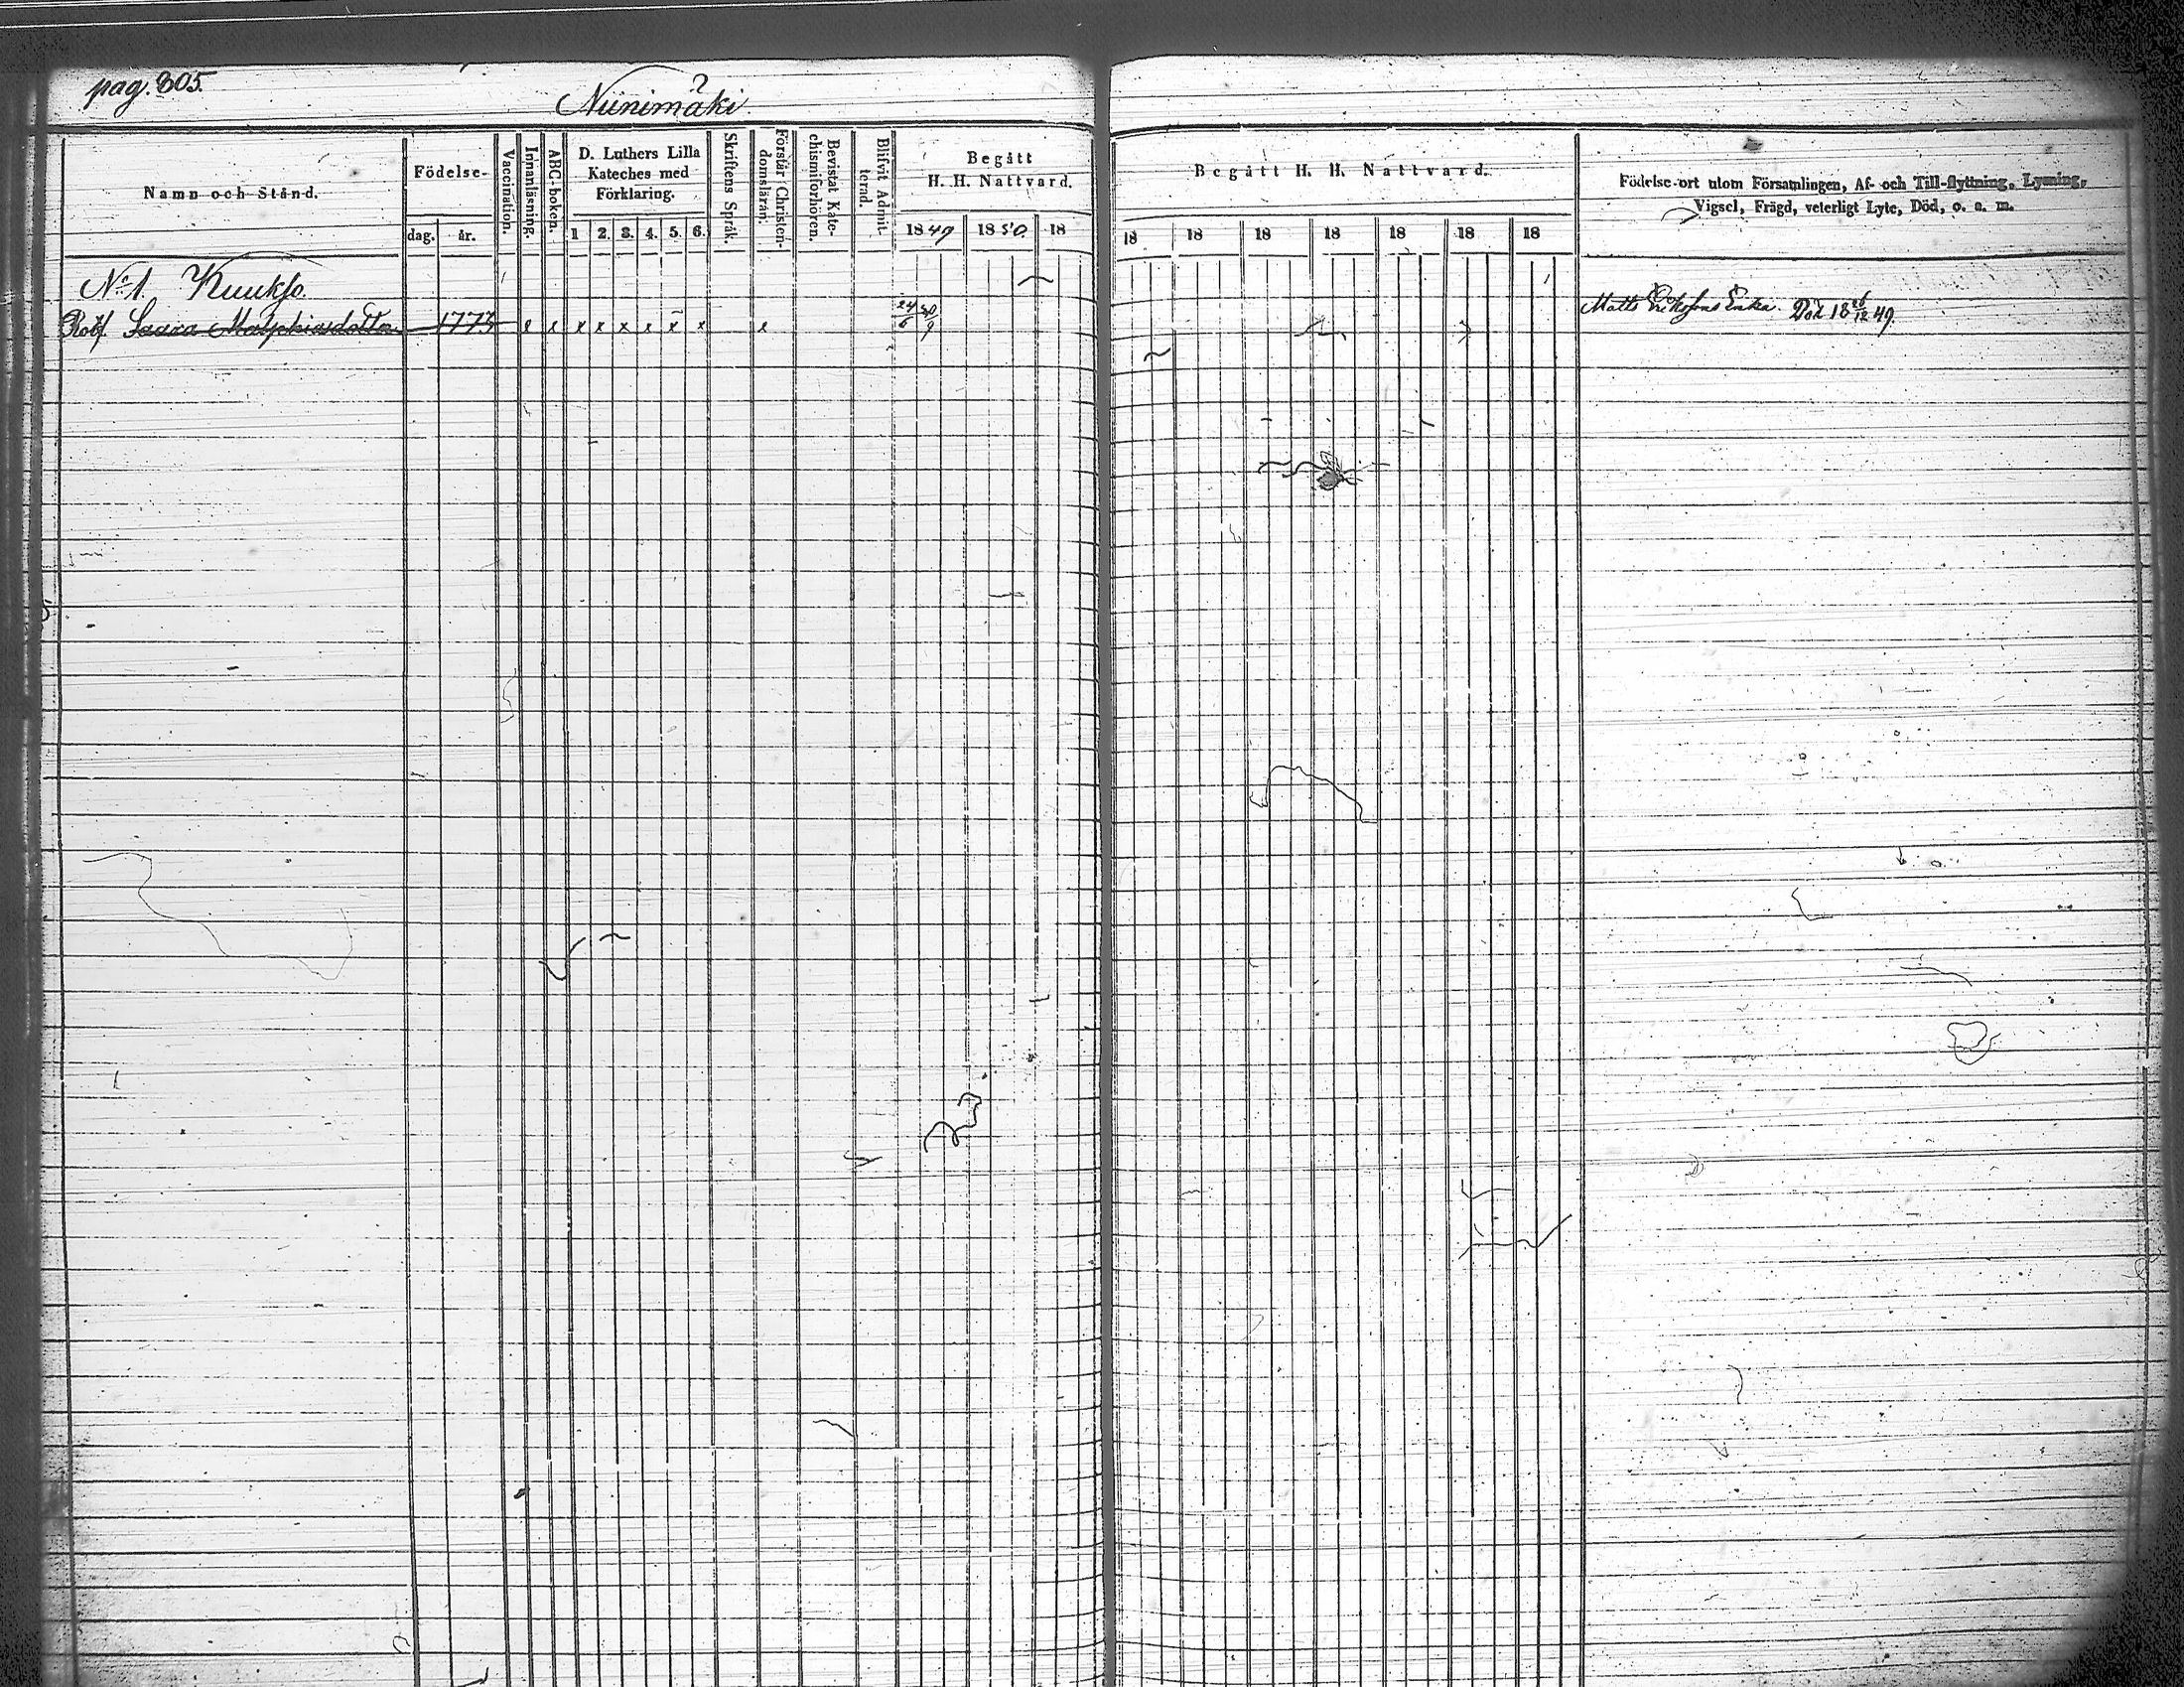 pag. 305.
Niinimäki.
Namn och Stånd.
Födelse-
dag.
år.
Vaccination.
Innanläsning.
ABC-boken.
D. Luthers Lilla
Kateches med
Förklaring.
1 2. 3. 4. 5. 6.
Skriftens Språk.
Förstår Christen-
domsläran.
Bevistat Kate-
chismiförhören.
Blifvit Admit-
terad.
Begått
H. H. Nattvard.
1849 1850. 18
Begått H. H. Nattvard.
18 18 18 18 18 18 18
Födelse-ort utom Församlingen, Af- och Till-flyttning, Lysning,
Vigsel, Frägd, veterligt Lyte, Död, o. s. m.
No 1. Kuukso.
Saara Matschiasdotter 1773 x x x x x x x x x 24/6 30/9 Matts Erikssons Enka. Död 18 26/12 49.